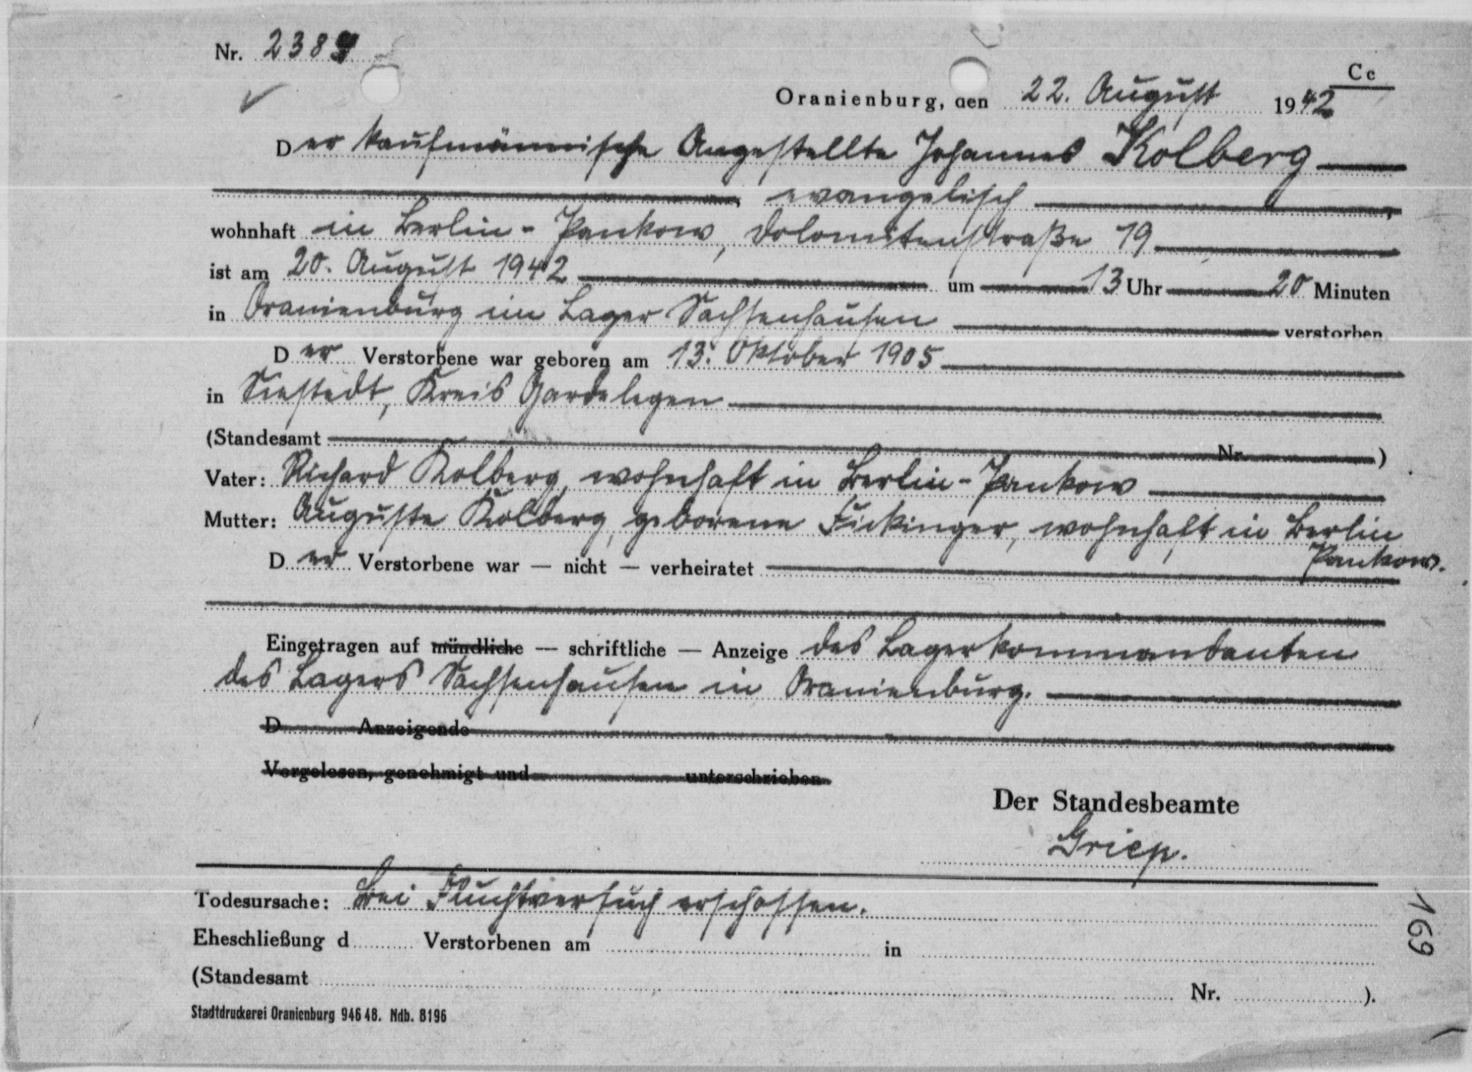 Nr. 238
Cc
Oranienburg, den 22. August 1942
Der kaufmännische Angestellte Johannes Kolberg
, evangelisch ,
wohnhaft in Berlin-Pankow, Dolomitenstraße 19
ist am 20. August 1942 um 13 Uhr 20 Minuten
in Oranienburg im Lager Sachsenhausen verstorben
Der Verstorbene war geboren am 13. Oktober 1905
in Siestedt, Kreis Gardelegen
(Standesamt Nr. )
Vater: Richard Kolberg, wohnhaft in Berlin-Pankow
Mutter: Auguste Kolberg, geborene Fickinger, wohnhaft in Berlin
Pankow.
Der Verstorbene war — nicht — verheiratet
Eingetragen auf mündliche — schriftliche — Anzeige des Lagerkommandanten
des Lagers Sachsenhausen in Oranienburg.
D Anzeigende
Vorgelesen, genehmigt und unterschrieben
Der Standesbeamte
Griep.
Todesursache: Bei Fluchtversuch erschossen.
Eheschließung d Verstorbenen am in
(Standesamt Nr. ).
Stadtdruckerei Oranienburg 946 48. Ndb. 8196
169